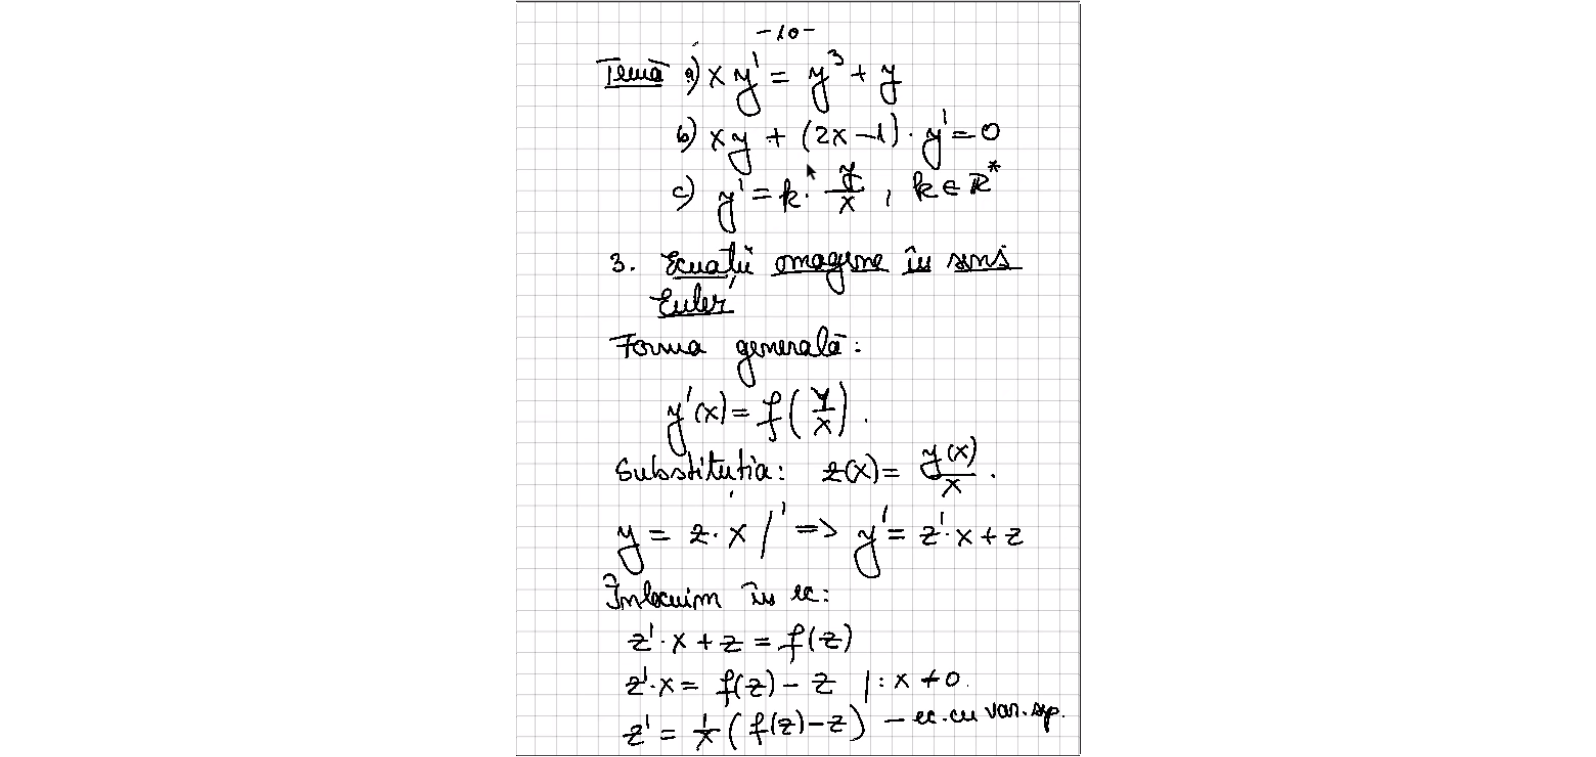 -10-
Temă a) xy' = y³ + y
b) xy + (2x-1)·y' = 0
c) y' = k·y/x, k ∈ ℝ*
3. Ecuații omogene în sens
Euler
Forma generală:
y'(x) = f(y/x).
Substituția: z(x) = y(x)/x.
y = z·x |' => y' = z'·x + z
Înlocuim în ec:
z'·x + z = f(z)
z'·x = f(z) - z |: x ≠ 0.
z' = 1/x (f(z) - z) - ec. cu var. sep.